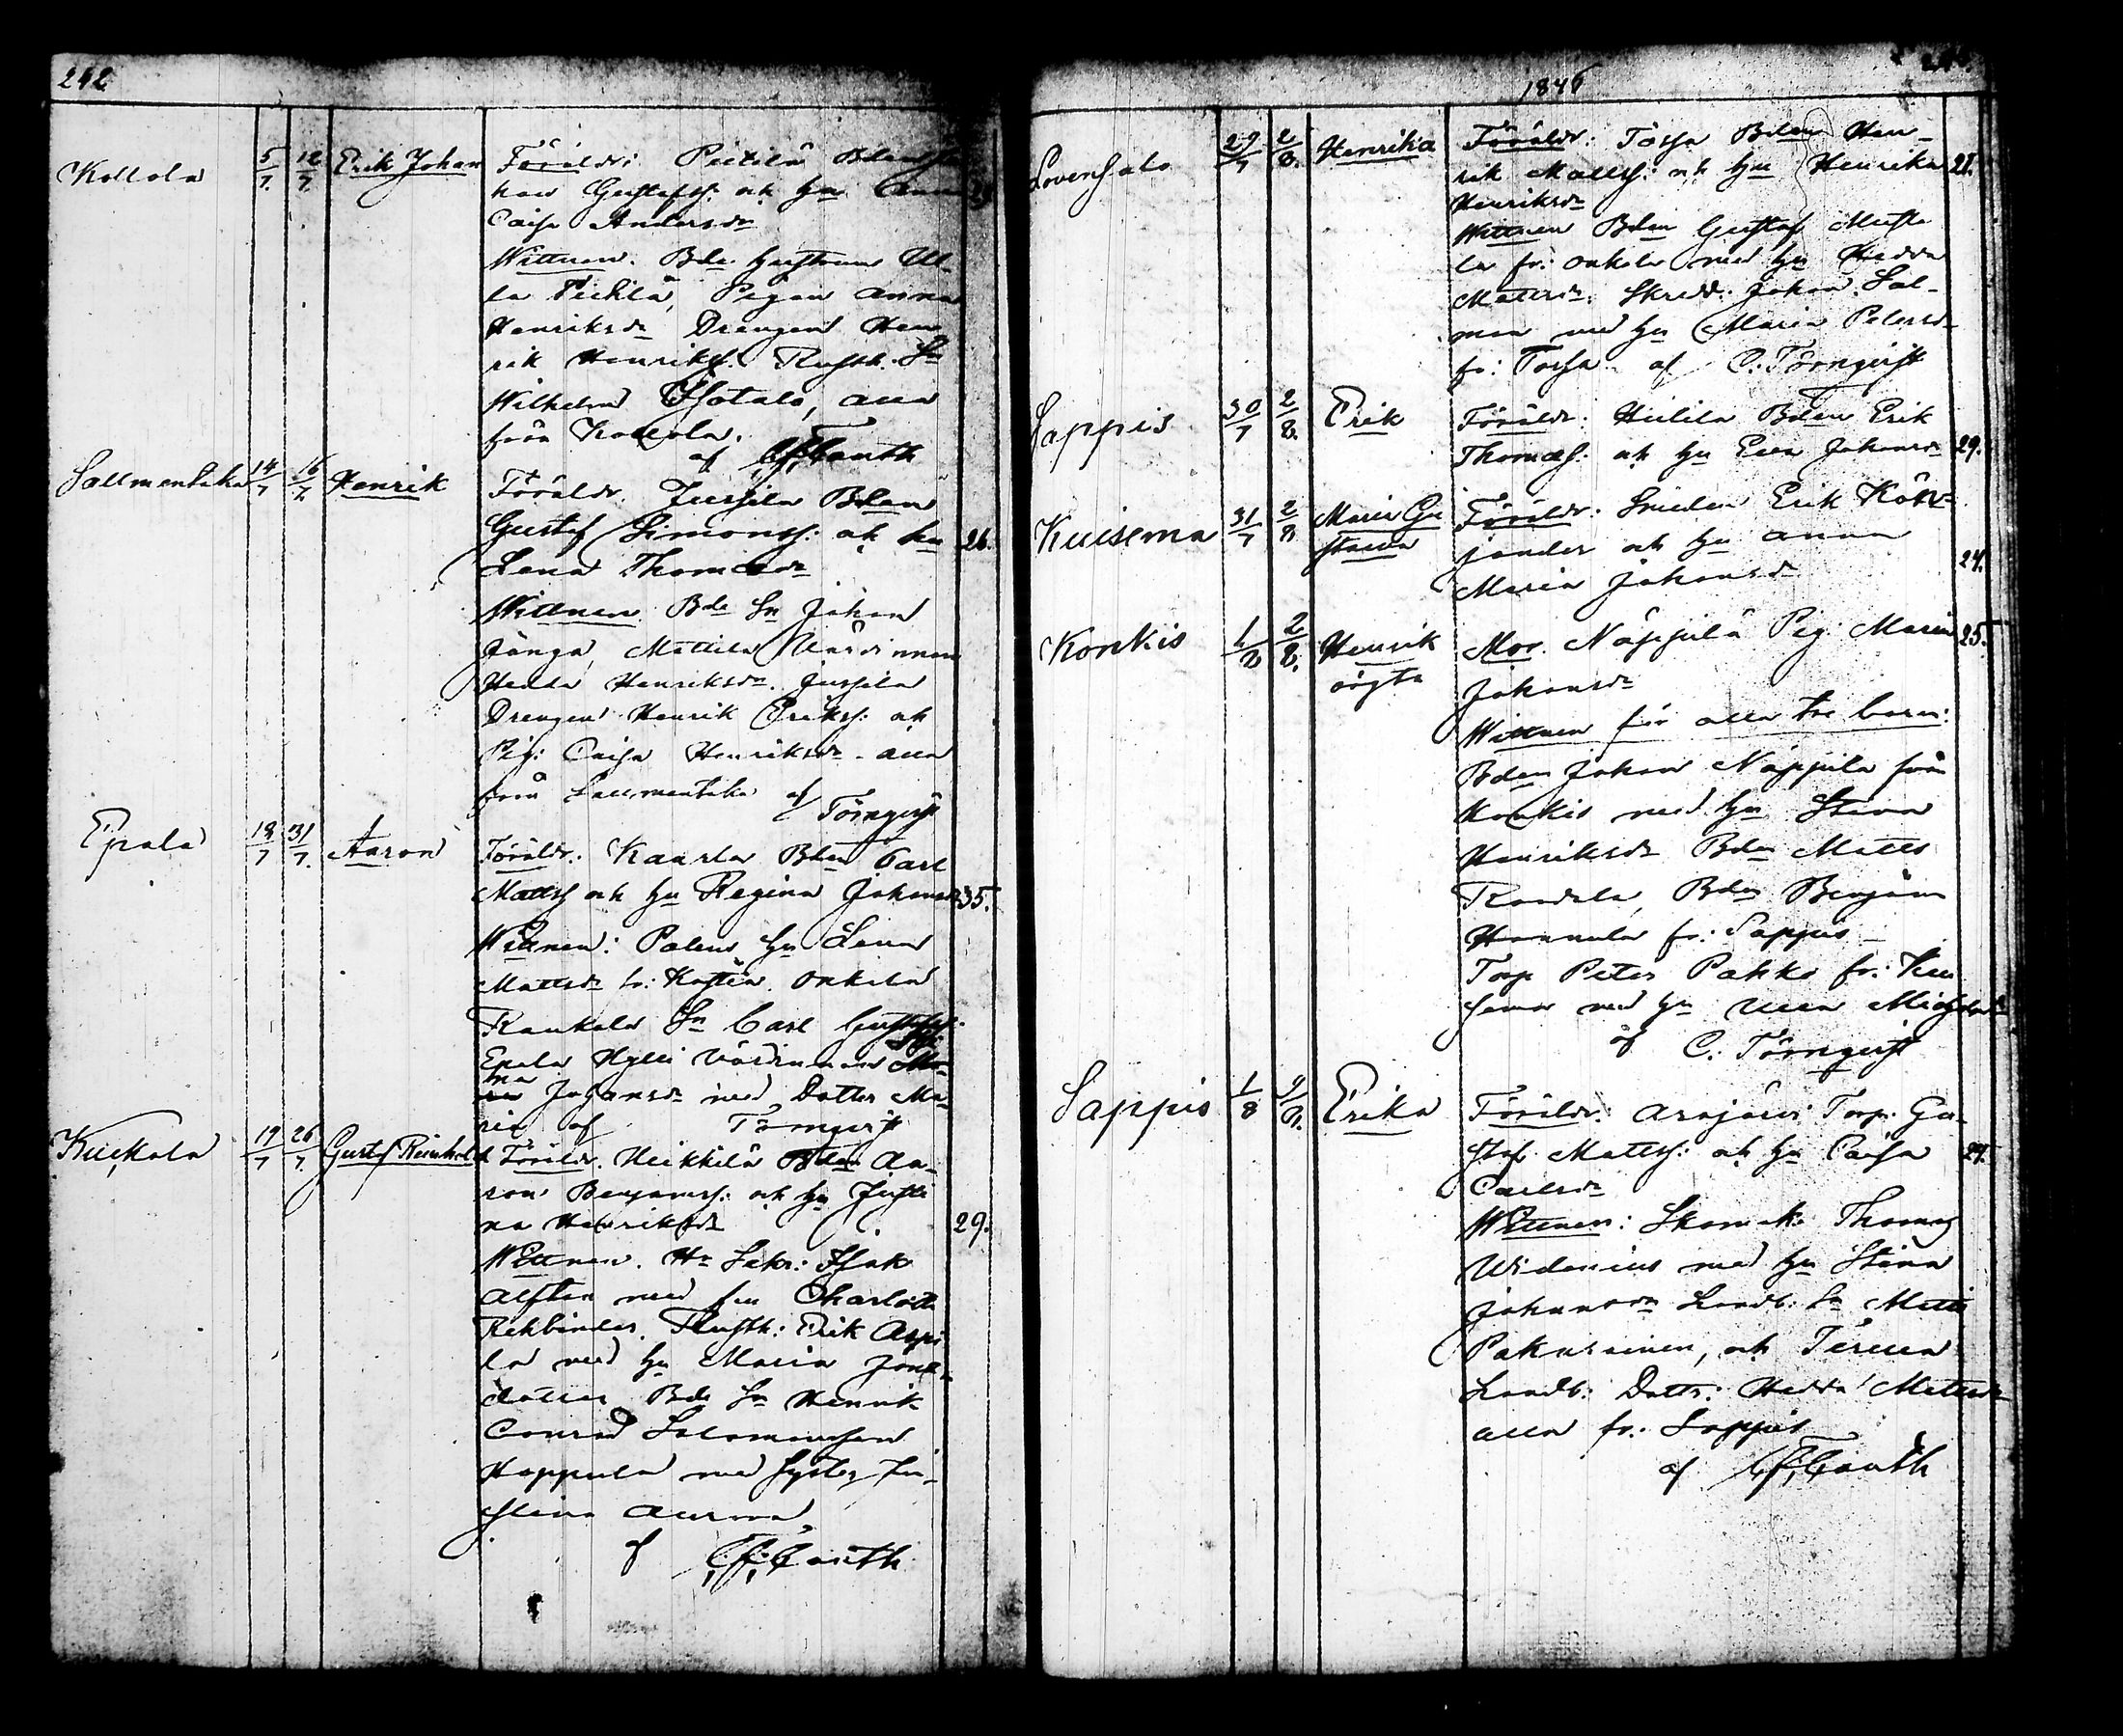 242
Kollola 5/7 12/7 Erik Johan Föräldr: Pietilä Bden Jo
han Gustafss: och hu Anna
Caisa Andersdr
Wittnen. Bde hustrun Ul-
la Pichlä, Pigan Anna
Henriksdr Drengen Hen
rik Henrikss. Rusth. Sn
Wilhelm Isotalo, alla
från Kollola.
af C.F. Cauth
Sallmentaka 14/7 16/7 Henrik Föräldr. Jussila Bden
Gustaf Simonss: och hu 26.
Lena Thomasdr
Wittnen. Bde Sn Johan
Jänga, Mattila Värdinnan
Hedda Henriksdr. Jussila
Drengen Henrik Erikss: och
Pig: Caisa Henriksdr. alla
från Sallmentaka af
Törnqvist
Epala 18/7 31/7 Aaron Föräldr: Kaarla Bden Carl
Mattss och hu Regina Johansdr 35.
Wittnen: Palens hu Lena
Mattsdr fr: Hostia. Onkala
Kaukala Sn Carl Gustafss.
Epala Hylli Värdinnan
Johansdr med Dotter Ma-
ria af Törnqvist
Kuckola 19/7 26/7 Gustaf Reinhold Föräldr. Heikkilä Bden Aa-
ron Benjamss: och hu Justi
na Henriksdr 29.
Wittnen. Hr Sekr: Isak
Alftan med fru Charlotta
Rehbinder. Rusth: Erik Appi
la med hu Maria Jons-
dotter Bde Sn Henrik
Conrad Salomonsson
Hoppula med Syster Ju-
stina Aurora
af C.F. Cauth
1846
Lovensalo 29/7 2/8. Henrika Föräldr: Tossa Bden Hen-
rik Mattss: och hu Henrika 28.
Henriksdr
Wittnen Bden Gustaf Musta
la fr: Onkala med hu Hedda
Mattsdr. Skredd: Johan Sal-
man med hu Maria Petersdr
fr: Tossa af C. Törnqvist
Sappis 30/7 2/8. Erik Föräldr: Heikilä Bden Erik
Thomass: och hu Eva Johansdr 29.
Kuisema 31/7 2/8 Maria Gu
stava Föräldr: Smeden Erik Kön-
jander och hu Anna
Maria Johansdr 24.
Konkis 1/8 2/8. Henrik
oägta Mor. Näppilä Pig: Maria 25.
Johansdr
Wittnen för alla tre barn:
Bden Johan Näppilä från
Konkis med hu Stina
Henriksdr Bden Matts
Randala, Bden Benjam
Hannula fr: Sappis
Torp Peter Pakka fr: Kui
sema med hu Ulla Michelsdr
af C. Törnqvist
Sappis 1/8 9/8. Erika Föräldr: Arajärvi Torp. Gu-
staf Mattss: och hu Caisa 27.
Carlsdr
Wittnen: Skomak: Thomas
Widenius med hu Stina
Johansdr Landb: Sn Matts
Pakurainen, och
Landb: Dottr: Hedda Mattsdr
alla fr: Sappis
af C.F. Cauth